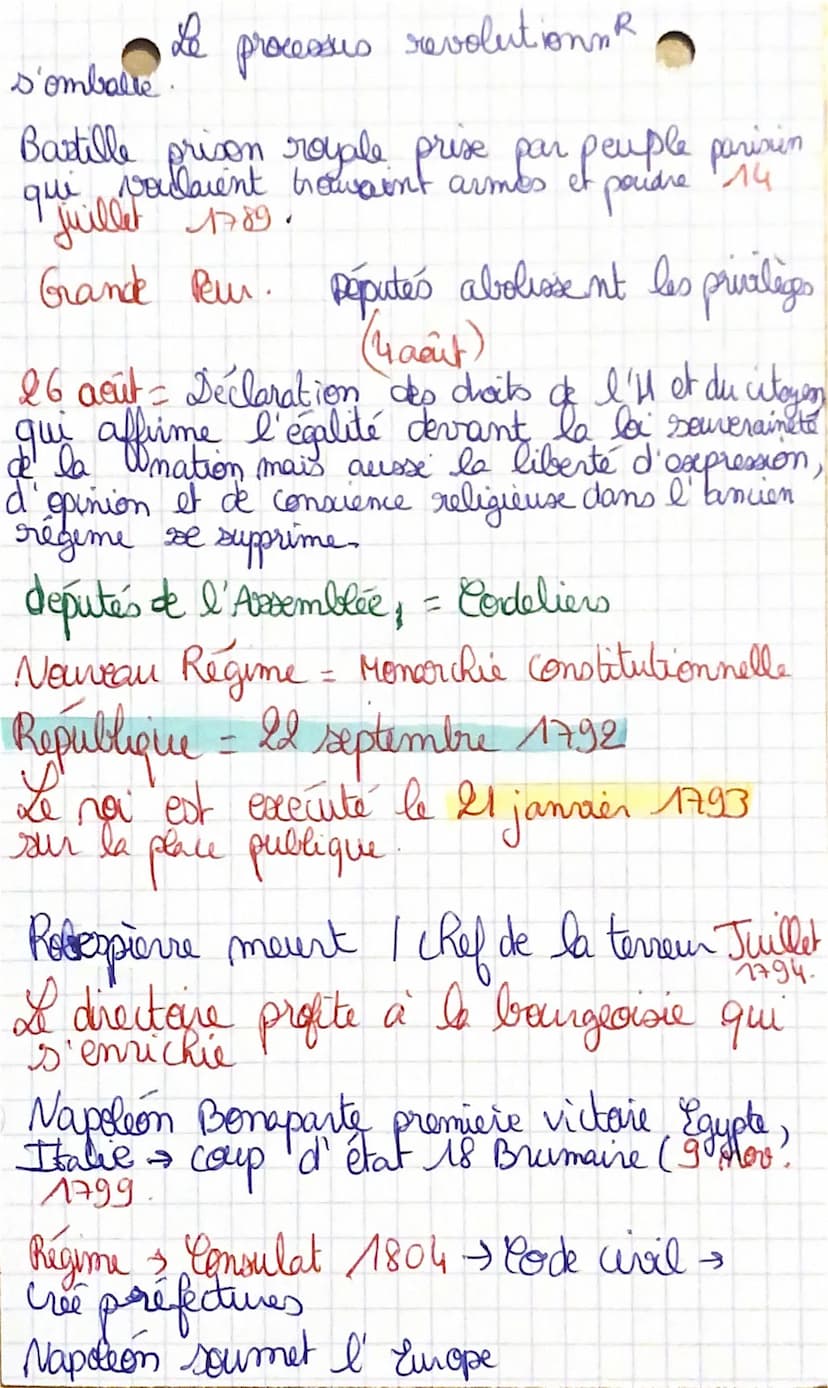 Le processus revolutionnR
s'emballe.
Bastille prison royale prise par peuple parisien
qui voulaient trouvaint armes et poudre 14
juillet 1789.
Grande Peur. Députés abolissent les privilèges
(4 août)
26 août = Déclaration des droits de l'H et du citoyen
qui affirme l'égalité devant la loi souveraineté
de la nation mais aussi la liberté d'expression,
d'opinion et de conscience religieuse dans l'ancien
régime se supprime.
députés de l'Assemblée, = Cordeliers
Nouveau Régime = Monarchie Constitutionnelle
République = 22 septembre 1792
Le roi est executé le 21 janvier 1793
sur la place publique.
Robespierre meurt / chef de la terreur Juillet
1794.
Le directoire profite à la bourgeoisie qui
s'enrichie
Napoléon Bonaparte premiere victoire Egypte,
Italie → coup d'état 18 Brumaire (9 Nov.
1799.
Régime → Consulat 1804 → Code civil →
Créé préfectures
Napoléon soumet l'Europe